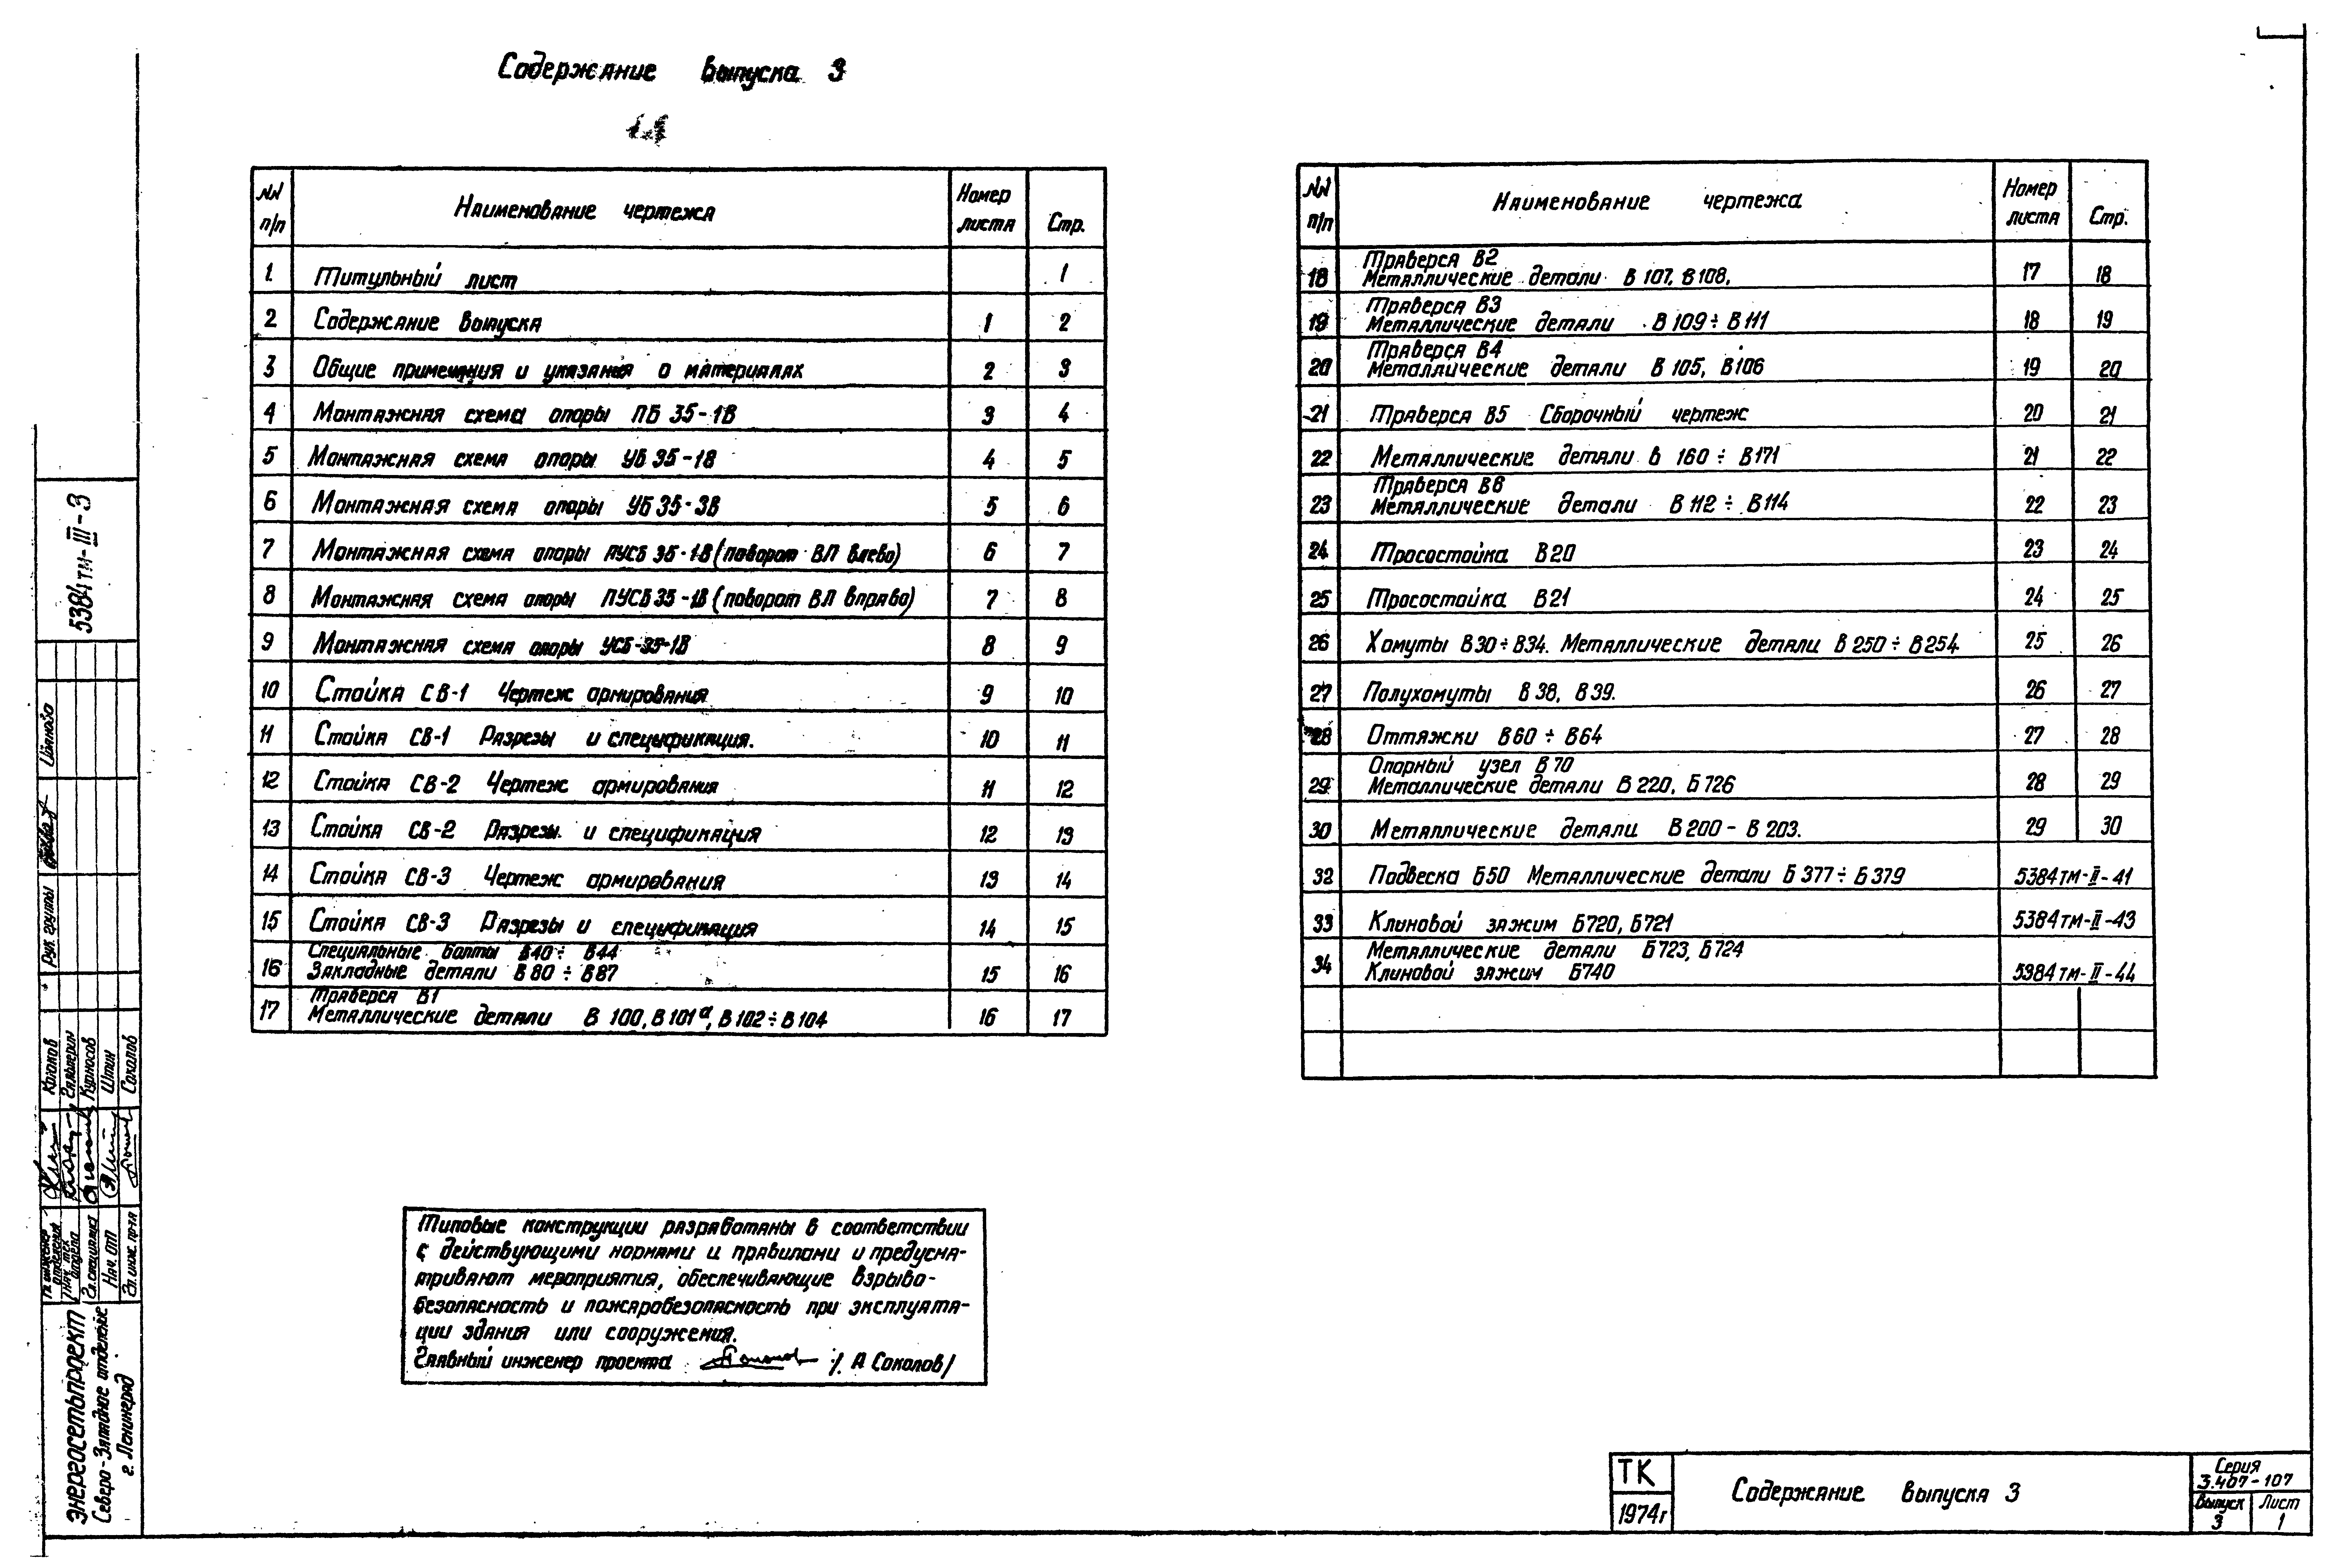 Содержание выпуска 3
№№ п/п Наименование чертежа Номер листа Стр.
1. Титульный лист 1
2 Содержание выпуска 1 2
3 Общие примечания и указания о материалах 2 3
4 Монтажная схема опоры ПБ 35-1В 3 4
5 Монтажная схема опоры УБ 35-1В 4 5
6 Монтажная схема опоры УБ 35-3В 5 6
7 Монтажная схема опоры ПУСБ 35-1В (поворот ВЛ влево) 6 7
8 Монтажная схема опоры ПУСБ 35-1В (поворот ВЛ вправо) 7 8
9 Монтажная схема опоры УСБ-35-1В 8 9
10 Стойка СВ-1 Чертеж армирования 9 10
11 Стойка СВ-1 Разрезы и спецификация. 10 11
12 Стойка СВ-2 Чертеж армирования 11 12
13 Стойка СВ-2 Разрезы и спецификация 12 13
14 Стойка СВ-3 Чертеж армирования 13 14
15 Стойка СВ-3 Разрезы и спецификация 14 15
Специальные болты В40÷ В44
16 Закладные детали В80÷ В87 15 16
Траверса В1
17 Металлические детали В 100, В 101ᵃ, В 102÷В 104 16 17
№№ п/п Наименование чертежа Номер листа Стр.
Траверса В2
18 Металлические детали В 107, В 108, 17 18
Траверса В3
19 Металлические детали В 109÷ В 111 18 19
Траверса В4
20 Металлические детали В 105, В106 19 20
21 Траверса В5 Сборочный чертеж 20 21
22 Металлические детали В 160÷ В171 21 22
Траверса В6
23 Металлические детали В 112÷ В 114 22 23
24 Тросостойка В20 23 24
25 Тросостойка В21 24 25
26 Хомуты В30÷В34. Металлические детали В 250÷ В254 25 26
27 Полухомуты В 38, В 39. 26 27
28 Оттяжки В60÷ В64 27 28
Опорный узел В 70
29 Металлические детали В 220, Б 726 28 29
30 Металлические детали В 200- В 203. 29 30
32 Подвеска Б50 Металлические детали Б 377÷ Б 379 5384тм-II-41
33 Клиновой зажим Б720, Б721 5384тм-II-43
Металлические детали Б723, Б724
34 Клиновой зажим Б740 5384тм-II-44
Типовые конструкции разработаны в соответствии
с действующими нормами и правилами и предусма-
тривают мероприятия, обеспечивающие взрыво-
безопасность и пожаробезопасность при эксплуата-
ции здания или сооружения.
Главный инженер проекта /. А Соколов/
5384тм-III-3
Рук. группы
Гл. инженер отделения Крюков
Нач. тех отдела Гальперин
Гл. специалист Курносов
Нач. ОТП Штин
Гл. инж. пр-та Соколов
ЭНЕРГОСЕТЬПРОЕКТ
Северо-Западное отделение
г. Ленинград
ТК
1974г
Содержание выпуска 3
Серия
3.407-107
Выпуск 3
Лист 1